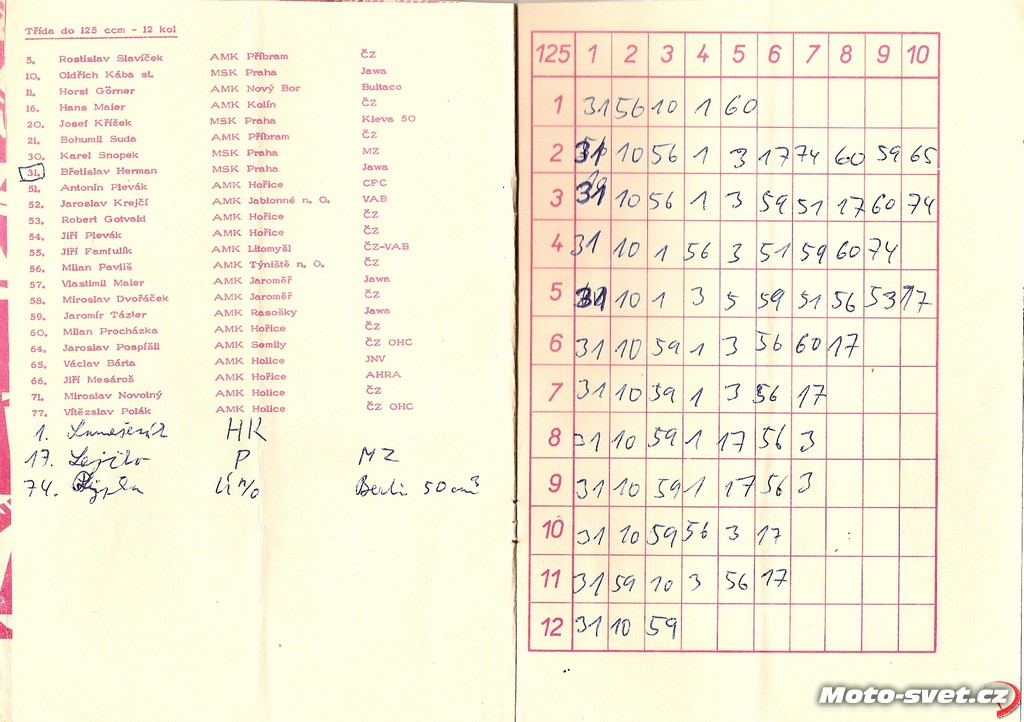 Třída do 125 ccm - 12 kol
5. Rostislav Slavíček AMK Příbram ČZ
10. Oldřich Kába st. MSK Praha Jawa
11. Horst Görner AMK Nový Bor Bultaco
16. Hans Maier AMK Kolín ČZ
20. Josef Křížek MSK Praha Kleva 50
21. Bohumil Suda AMK Příbram ČZ
30. Karel Snopek MSK Praha MZ
31. Břetislav Herman MSK Praha Jawa
51. Antonín Plevák AMK Hořice CFC
52. Jaroslav Krejčí AMK Jablonné n. O. VAB
53. Robert Gotvald AMK Hořice ČZ
54. Jiří Plevák AMK Hořice ČZ
55. Jiří Famfulík AMK Litomyšl ČZ-VAB
56. Milan Paviliš AMK Týniště n. O. ČZ
57. Vlastimil Maier AMK Jaroměř Jawa
58. Miroslav Dvořáček AMK Jaroměř ČZ
59. Jaromír Tázler AMK Rasošky Jawa
60. Milan Procházka AMK Hořice ČZ
64. Jaroslav Pospíšil AMK Semily ČZ OHC
65. Václav Bárta AMK Holice JNV
66. Jiří Mesároš AMK Hořice AHRA
71. Miroslav Novotný AMK Holice ČZ
77. Vítězslav Polák AMK Holice ČZ OHC
1. HK
17. P MZ
74. 50 cm³
125 1 2 3 4 5 6 7 8 9 10
1 31 56 10 1 60
2 31 10 56 1 3 17 74 60 59 65
3 31 10 56 1 3 59 51 17 60 74
4 31 10 1 56 3 51 59 60 74
5 31 10 1 3 5 59 51 56 53 17
6 31 10 59 1 3 56 60 17
7 31 10 59 1 3 56 17
8 31 10 59 1 17 56 3
9 31 10 59 1 17 56 3
10 31 10 59 56 3 17
11 31 59 10 3 56 17
12 31 10 59
Moto-svet.cz